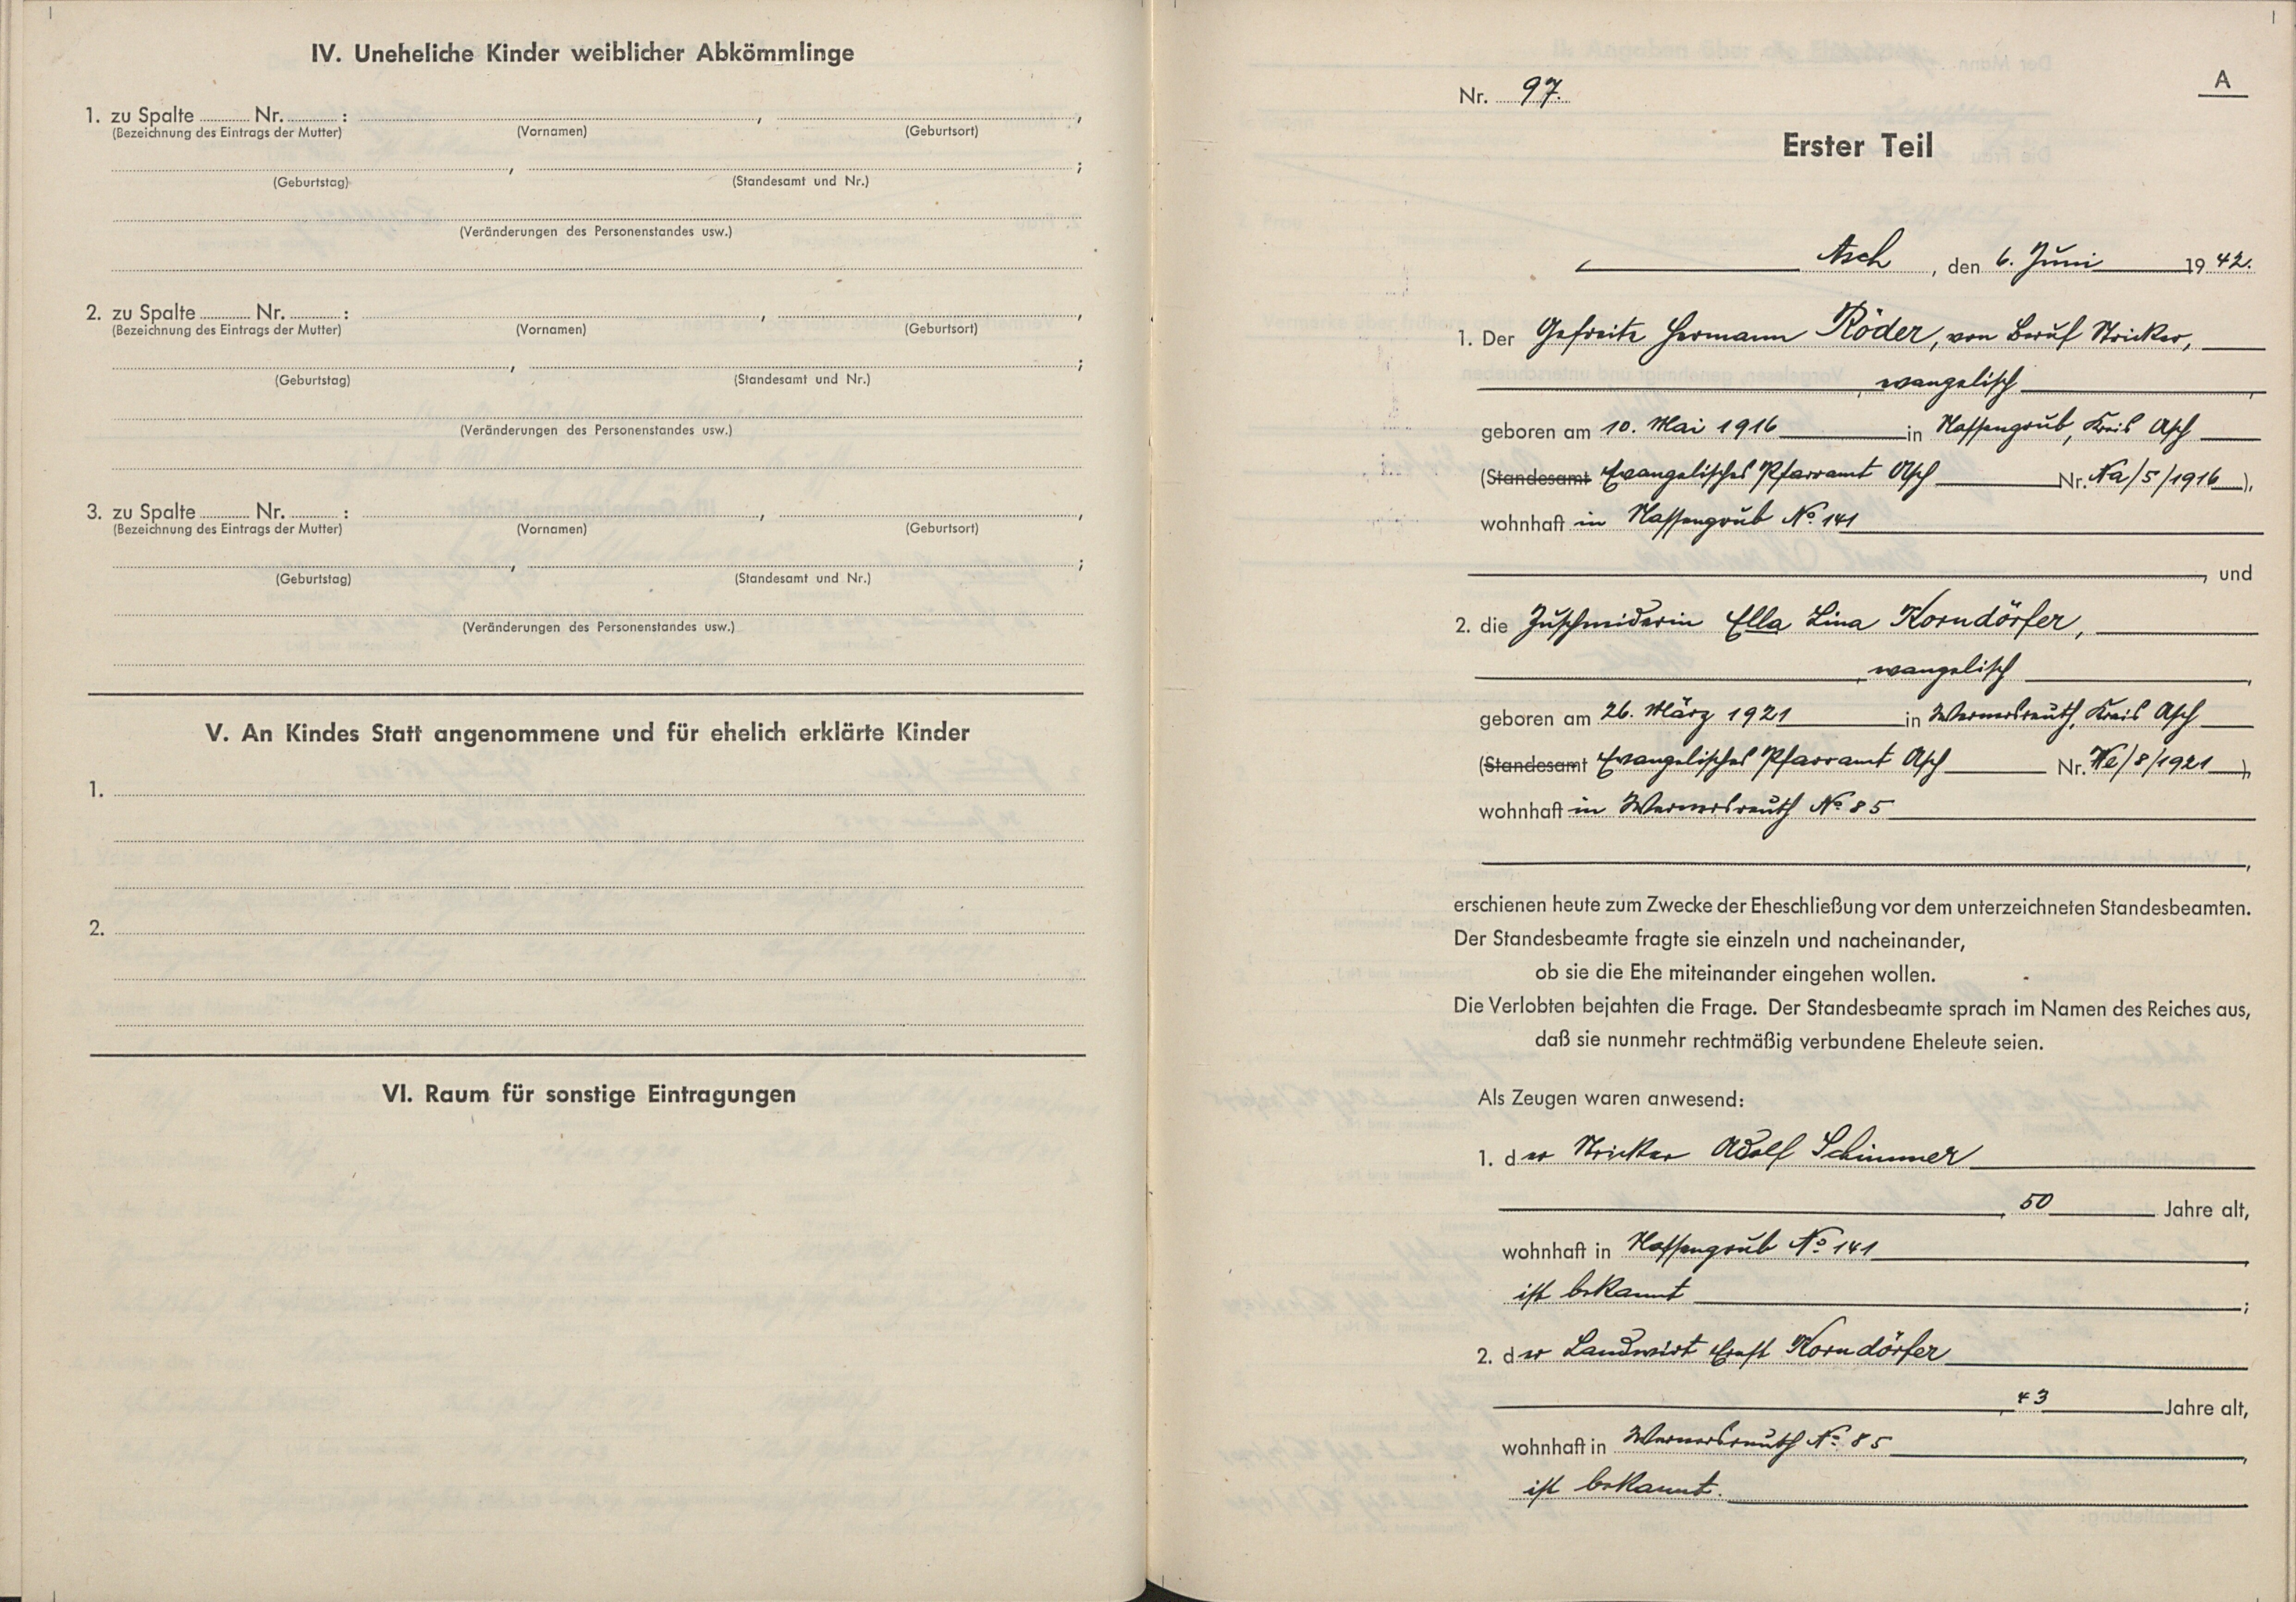 IV. Uneheliche Kinder weiblicher Abkömmlinge
1. zu Spalte ......... Nr. ......... : ........., .........,
(Bezeichnung des Eintrags der Mutter) (Vornamen) (Geburtsort)
........., ......... ;
(Geburtstag) (Standesamt und Nr.)
(Veränderungen des Personenstandes usw.)
2. zu Spalte ......... Nr. ......... : ........., .........,
(Bezeichnung des Eintrags der Mutter) (Vornamen) (Geburtsort)
........., ......... ;
(Geburtstag) (Standesamt und Nr.)
(Veränderungen des Personenstandes usw.)
3. zu Spalte ......... Nr. ......... : ........., .........,
(Bezeichnung des Eintrags der Mutter) (Vornamen) (Geburtsort)
........., ......... ;
(Geburtstag) (Standesamt und Nr.)
(Veränderungen des Personenstandes usw.)
V. An Kindes Statt angenommene und für ehelich erklärte Kinder
1.
2.
VI. Raum für sonstige Eintragungen
A
Nr. 97.
Erster Teil
Asch, den 6. Juni 1942.
1. Der Gefreite Hermann Röder, von Beruf Stricker,
, evangelisch ,
geboren am 10. Mai 1916 in Nassengrub, Kreis Asch
(Standesamt Evangelisches Pfarramt Asch Nr. Na/5/1916),
wohnhaft in Nassengrub No 141
, und
2. die Zuschneiderin Ella Lina Korndörfer,
, evangelisch ,
geboren am 26. März 1921 in Wernersreuth, Kreis Asch
(Standesamt Evangelisches Pfarramt Asch Nr. We/8/1921),
wohnhaft in Wernersreuth No 85
,
erschienen heute zum Zwecke der Eheschließung vor dem unterzeichneten Standesbeamten.
Der Standesbeamte fragte sie einzeln und nacheinander,
ob sie die Ehe miteinander eingehen wollen.
Die Verlobten bejahten die Frage. Der Standesbeamte sprach im Namen des Reiches aus,
daß sie nunmehr rechtmäßig verbundene Eheleute seien.
Als Zeugen waren anwesend:
1. der Stricker Adolf Schimmer
, 50 Jahre alt,
wohnhaft in Nassengrub No 141,
ist bekannt ;
2. der Landwirt Ernst Korndörfer
, 43 Jahre alt,
wohnhaft in Wernersreuth No 85,
ist bekannt.